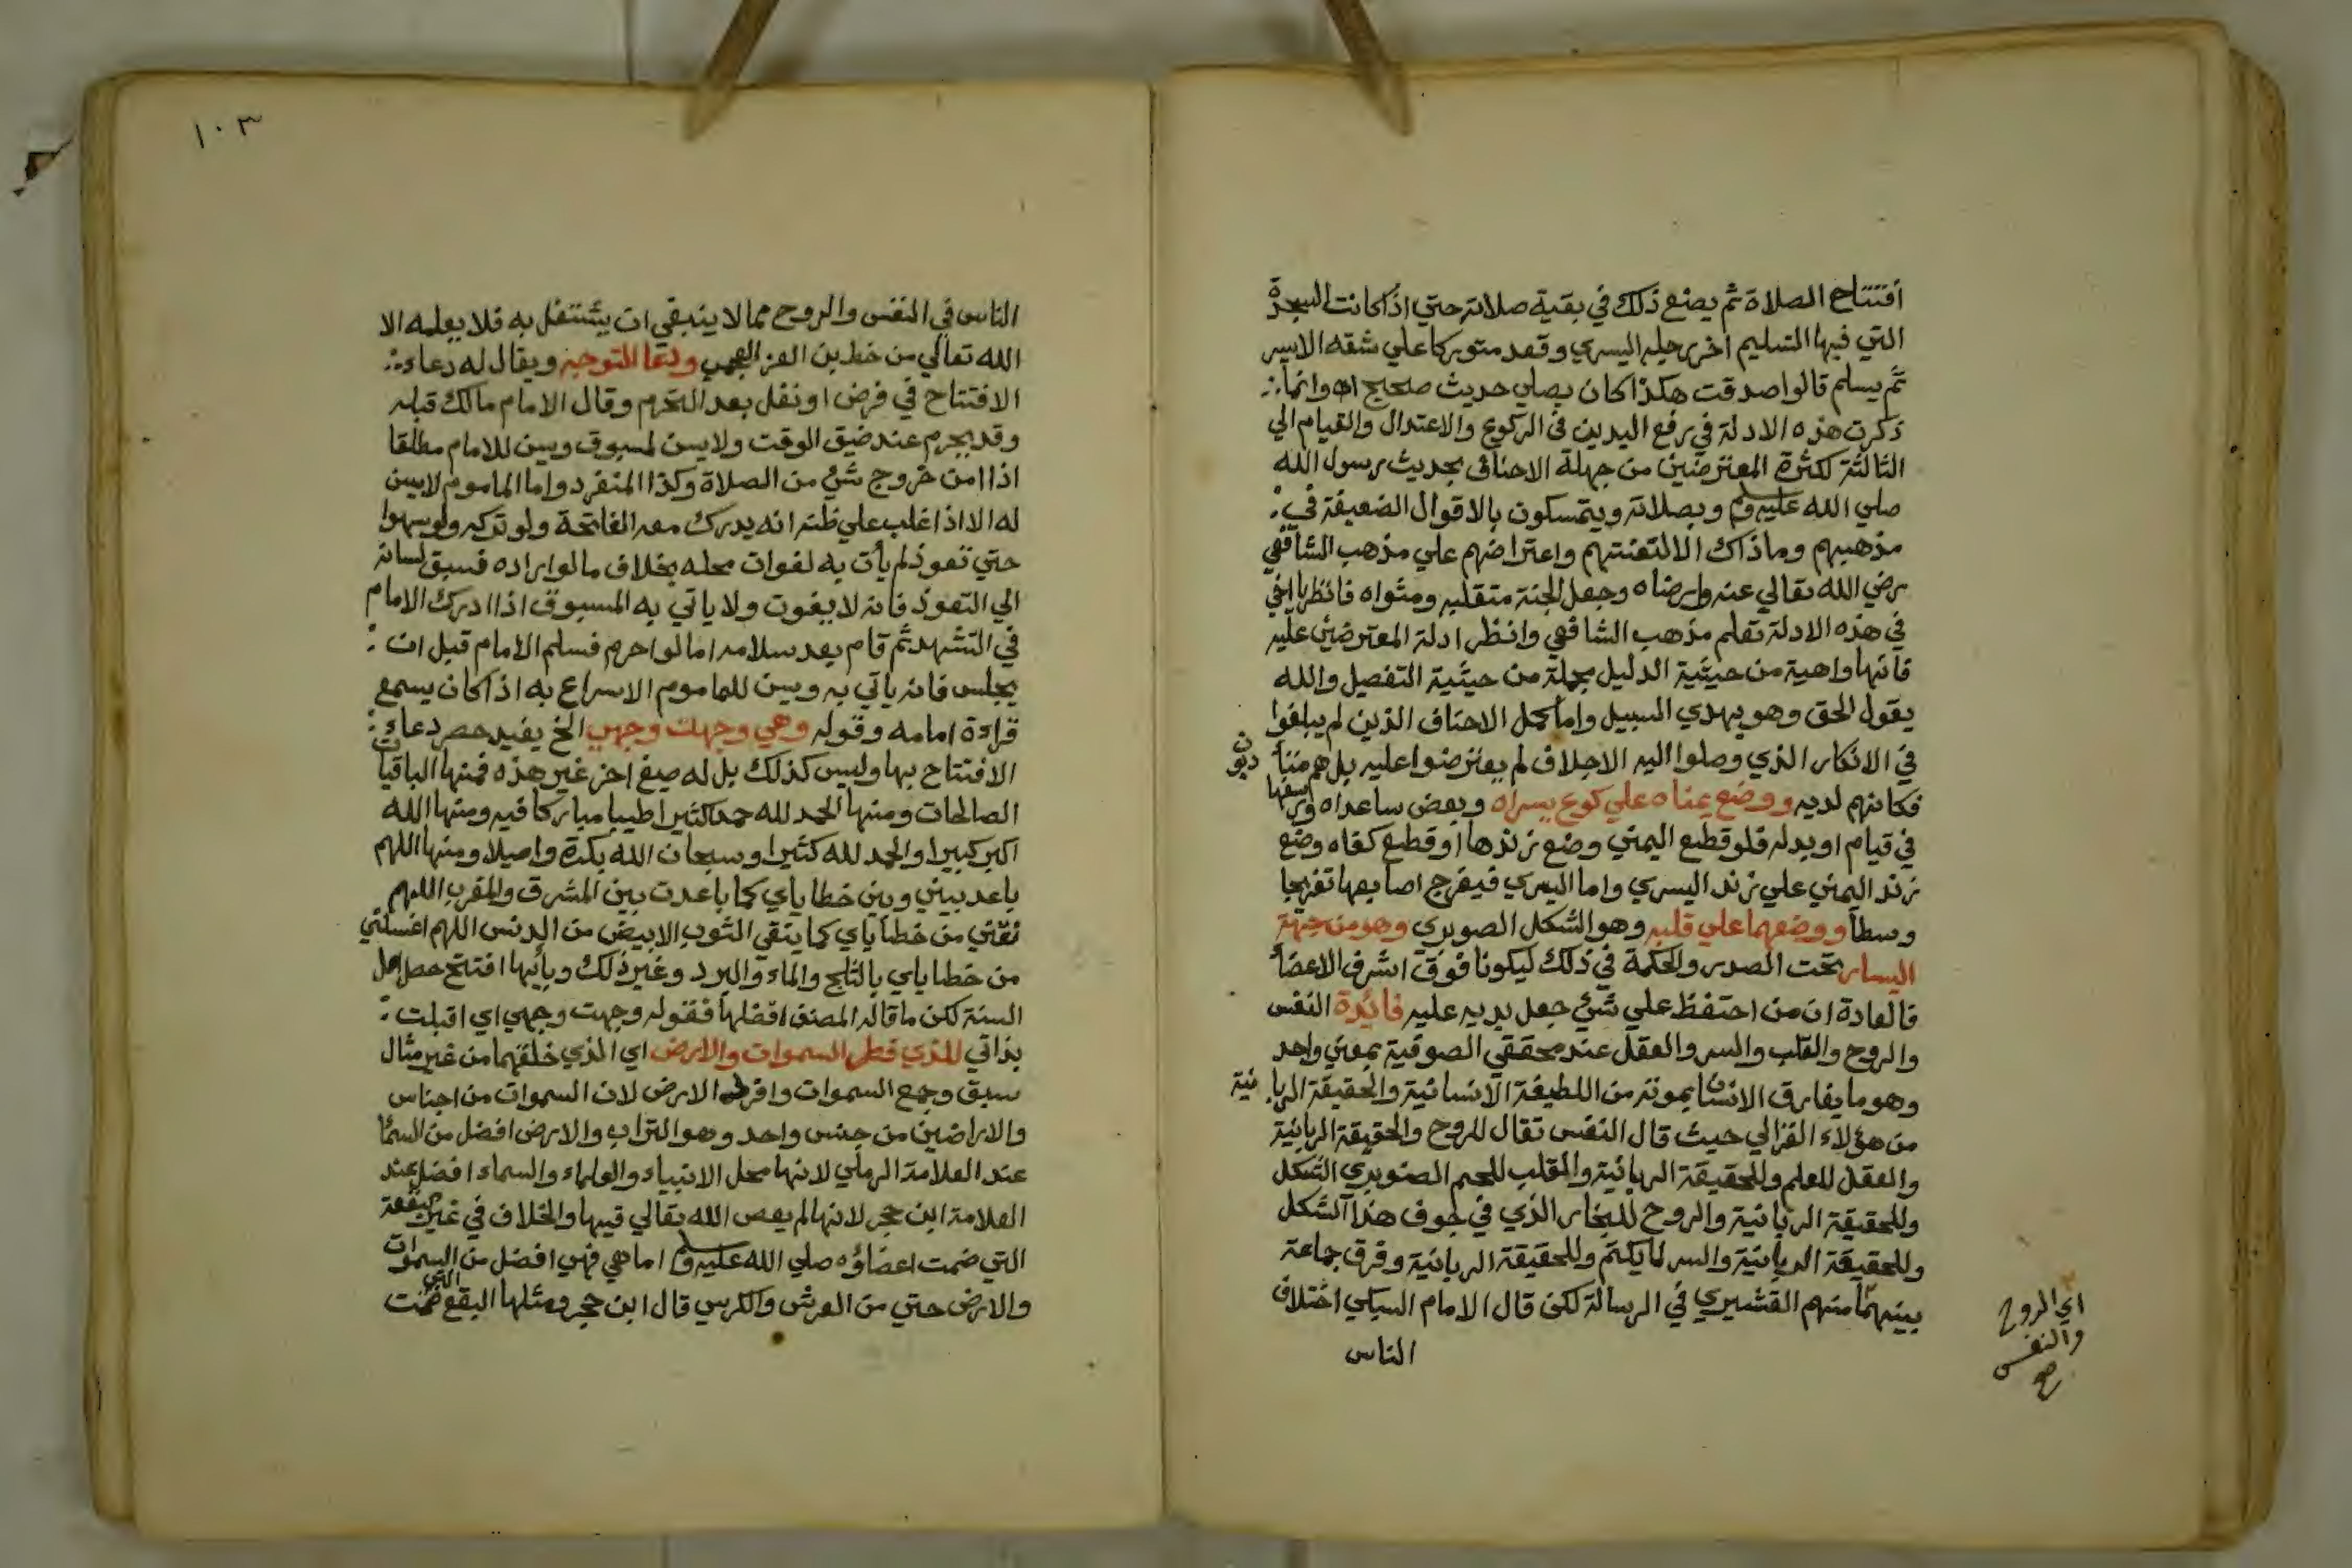 افتتاح الصلاة ثم يصنع ذلك في بقية صلاته حتي اذا كانت السجدة
التي فيها التسليم اخر رجليه اليسري وقعد متوركا علي شقه الايسر
ثم يسلم قالوا صدقت هكذا كان يصلي حديث صحيح اه وانما
ذكرت هذه الادلة في رفع اليدين في الركوع والاعتدال والقيام الي
الثالثة لكثرة المعترضين من جهلة الاحناف بحديث رسول الله
صلي الله عليه وسلم وبصلاته ويتمسكون بالاقوال الضعيفة في
مذهبهم وما ذاك الا لتعنتهم واعتراضهم علي مذهب الشافعي
رضي الله تعالي عنه وارضاه وجعل الجنة متقلبه ومثواه فانظر يا اخي
في هذه الادلة تعلم مذهب الشافعي وانظر ادلة المعترضين عليه
فانها واهية من حيثية الدليل مجملة من حيثية التفصيل والله
يقول الحق وهو يهدي السبيل واما كمل الاحناف الذين لم يبلغوا
في الانكار الذي وصلوا اليه الاجلاف لم يعترضوا عليه بل هم متأدبون
فكانهم لديه ووضع يمناه علي كوع يسراه وبعض ساعداه ورسغها
في قيام او بدله فلو قطع اليمني وضع زندها او قطع كفاه وضع
زند اليمني علي زند اليسري واما اليسري فيفرج اصابعها تفريجا
وسطا ووضعهما علي قلبه وهو الشكل الصوبري وهو من جهة
اليسار تحت الصدر والحكمة في ذلك ليكونا فوق اشرف الاعضأ
فالعادة ان من احتفظ علي شئ جعل يديه عليه فائدة النفس
والروح والقلب والسر والعقل عند محققي الصوفية بمعني واحد
وهو ما يفارق الانسان بموته من اللطيفة الانسانية والحقيقة الربانية
من هؤلاء الغزالي حيث قال النفس تقال للروح والحقيقة الربانية
والعقل للعلم وللحقيقة الربانية والقلب للحم الصنوبري الشكل
وللحقيقة الربانية والروح للبخار الذي في جوف هذا الشكل
وللحقيقة الربانية والسر لما يكتم وللحقيقة الربانية وفرق جماعة
بينهما منهم القشيري في الرسالة لكن قال الامام السبكي اختلاف
الناس
اي الروح
والنفس
صح
١٠٣
الناس في النفس والروح مما لا ينبغي ان يشتغل به فلا يعلمه الا
الله تعالي من خط بن العز العجمي ودعا التوجه ويقال له دعاء
الافتتاح في فرض او نفل بعد التحرم وقال الامام مالك قبله
وقد يحرم عند ضيق الوقت ولا يسن لمسبوق ويسن للامام مطلقا
اذا امن خروج شئ من الصلاة وكذا المنفرد واما الماموم لا يسن
له الا اذا غلب علي ظنه انه يدرك معه الفاتحة ولو تركه ولو سهوا
حتي تعوذ لم يأت به لفوات محله بخلاف ما لو اراده فسبق لسانه
الي التعوذ فانه لا يفوت ولا ياتي به المسبوق اذا ادرك الامام
في التشهد ثم قام بعد سلامه اما لو احرم فسلم الامام قبل ان
يجلس فانه ياتي به ويسن للماموم الاسراع به اذا كان يسمع
قراءة امامه وقوله وهي وجهت وجهي الخ يفيد حصر دعاء
الافتتاح بها وليس كذلك بل له صيغ اخر غير هذه فمنها الباقيات
الصالحات ومنها الحمد لله حمدا كثيرا طيبا مباركا فيه ومنها الله
اكبر كبيرا والحمد لله كثيرا وسبحان الله بكرة واصيلا ومنها اللهم
باعد بيني وبين خطاياي كما باعدت بين المشرق والمغرب اللهم
نقني من خطاياي كما ينقي الثوب الابيض من الدنس اللهم اغسلني
من خطاياي بالثلج والماء والبرد وغير ذلك وبأيها افتتح حصل اصل
السنة لكن ما قاله المصنف افضلها فقوله وجهت وجهي اي اقبلت
بذاتي للذي فطر السموات والارض اي الذي خلقهما من غير مثال
سبق وجمع السموات وافرد الارض لان السموات من اجناس
والاراضين من جنس واحد وهو التراب والارض افضل من السمأ
عند العلامة الرملي لانها محل الانبياء والعلماء والسماء افضل عند
العلامة ابن حجر لانها لم يعص الله تعالي فيها والخلاف في غير البقعة
التي ضمت اعضاؤه صلي الله عليه وسلم اما هي فهي افضل من السموات
والارض حتي من العرش والكرسي قال ابن حجر ومثلها البقع التي ضمت